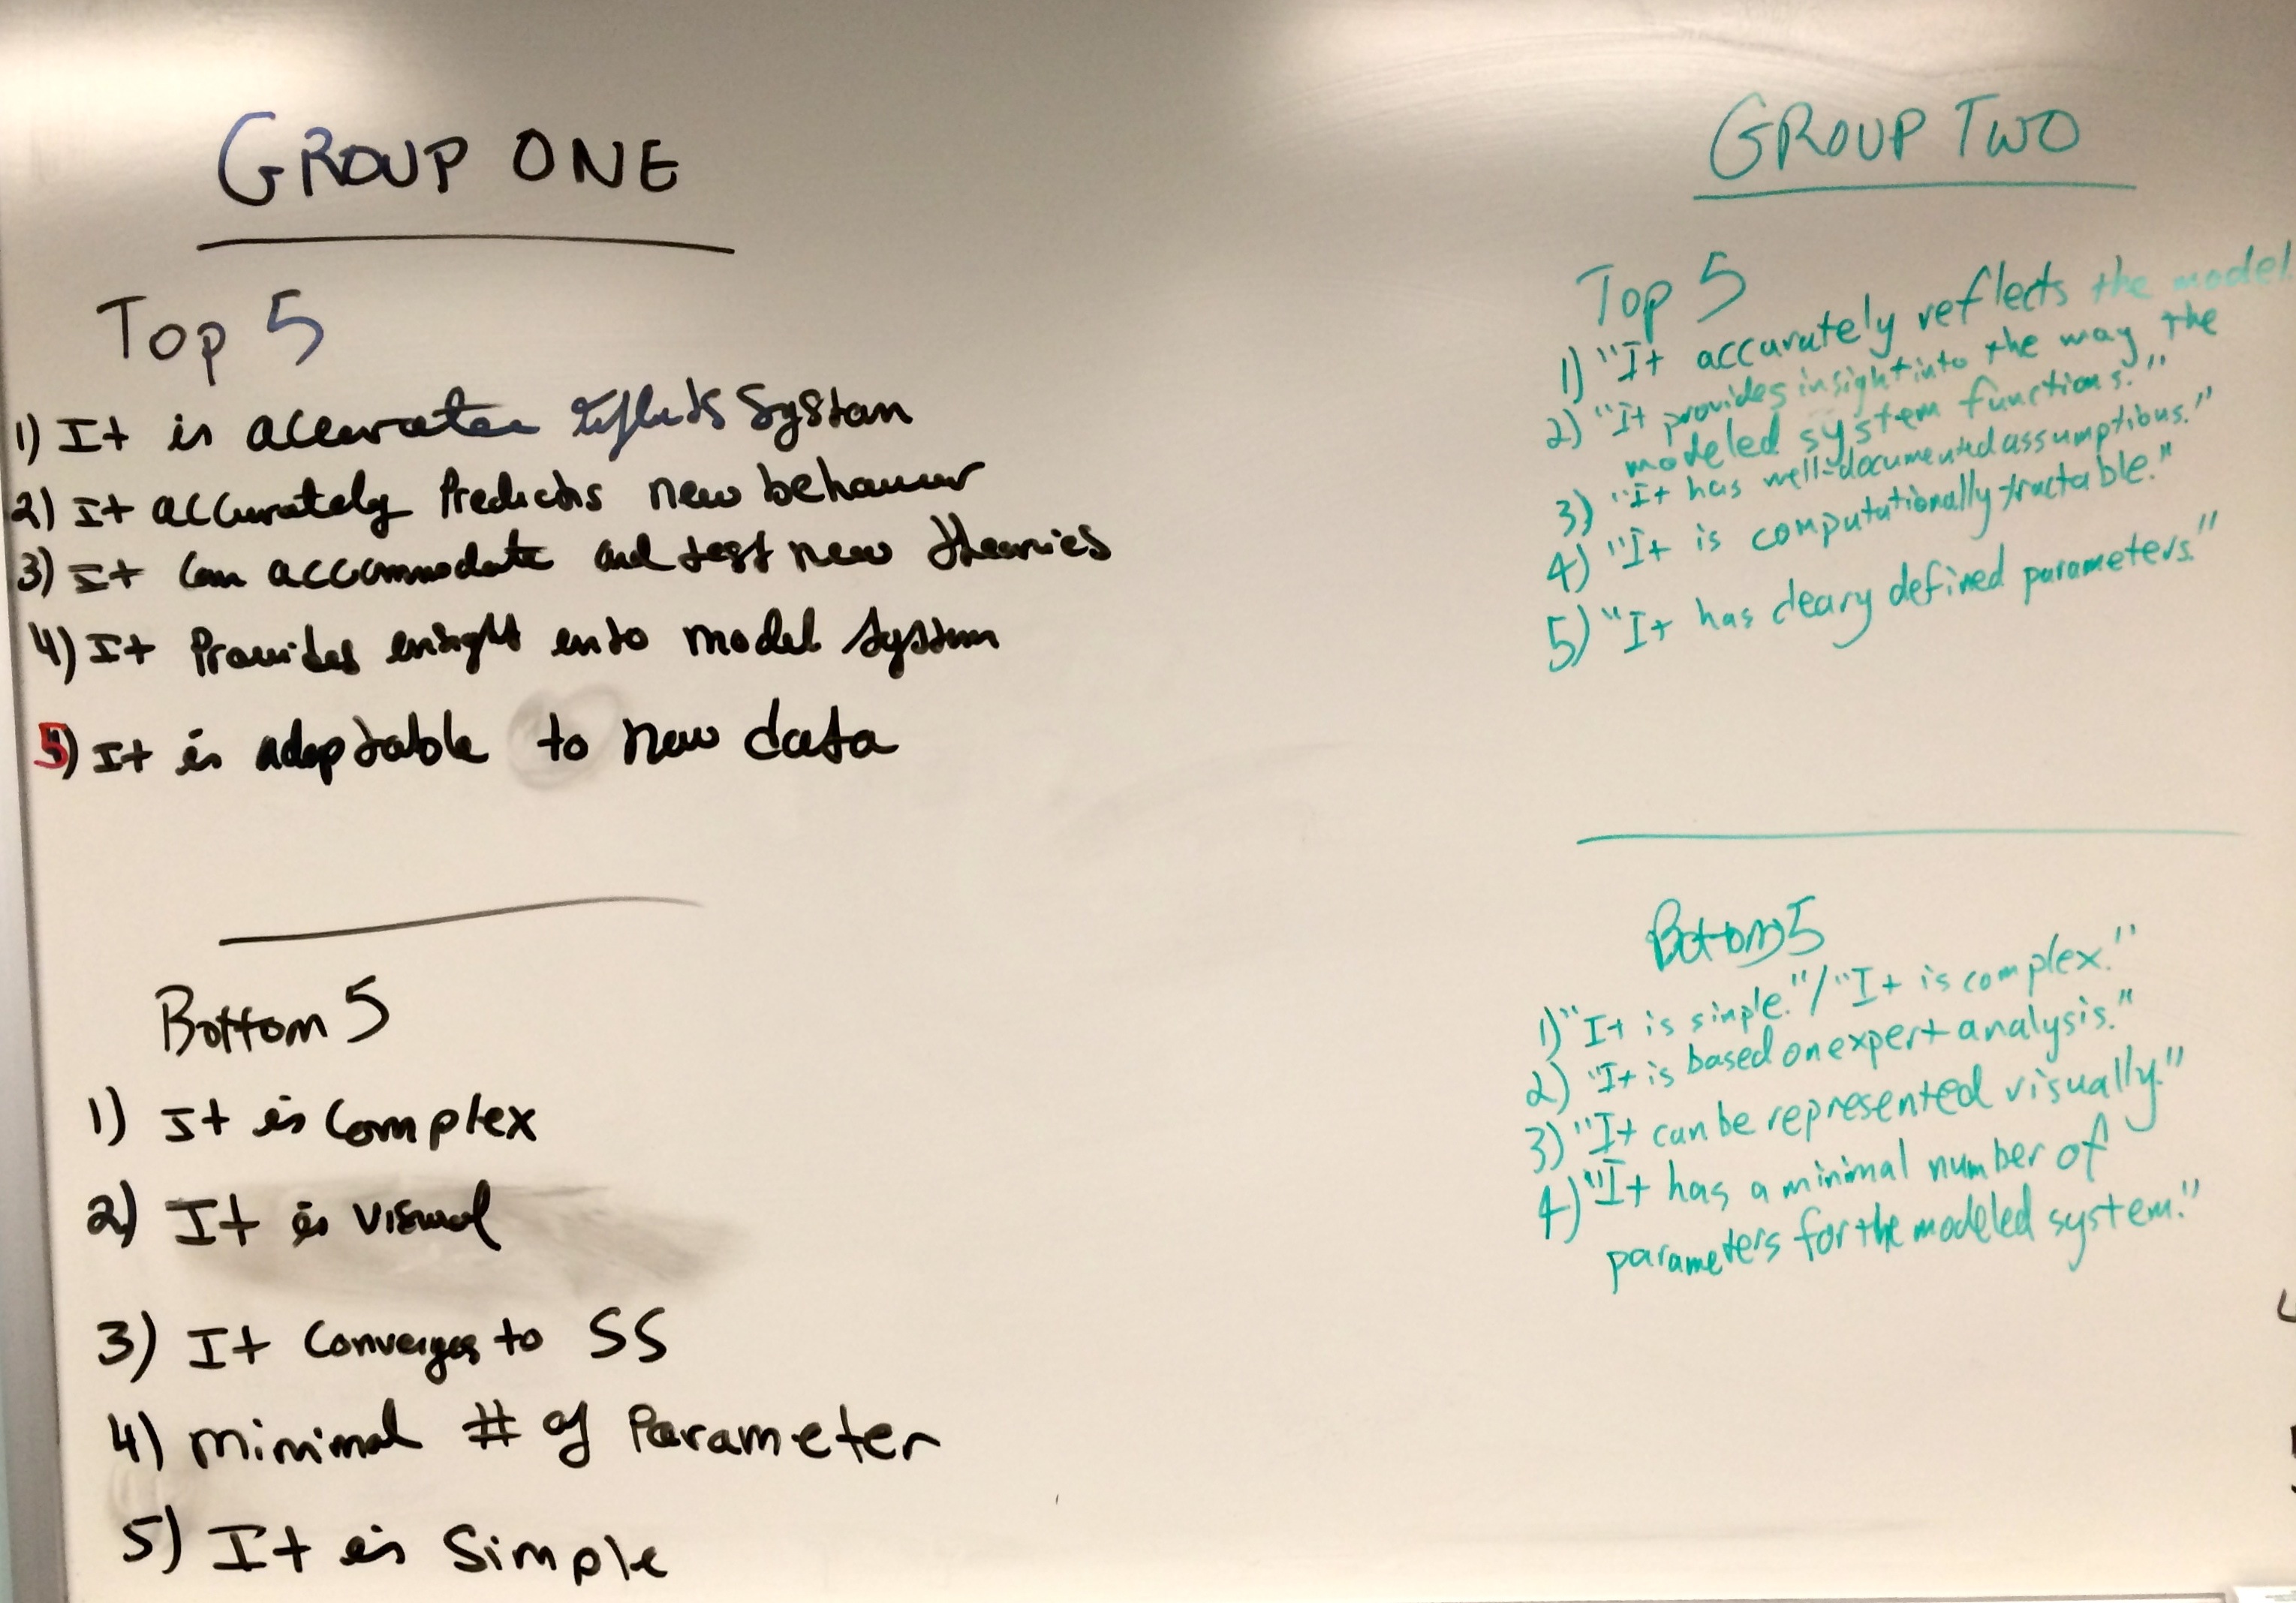 GROUP ONE
Top 5
1) It is accurate reflects System
2) It accurately Predicts new behaviour
3) It can accommodate and test new theories
4) It Provides insight into model System
5) It is adaptable to new data
Bottom 5
1) It is Complex
2) It is visual
3) It Converges to SS
4) minimal # of Parameter
5) It is Simple
GROUP TWO
Top 5
1) "It accurately reflects the model
2) "It provides insight into the way the
modeled system functions."
3) "It has well-documented assumptions."
4) "It is computationally tractable."
5) "It has cleary defined parameters."
Bottom 5
1) "It is simple."/"It is complex."
2) "It is based on expert analysis."
3) "It can be represented visually."
4) "It has a minimal number of
parameters for the modeled system."